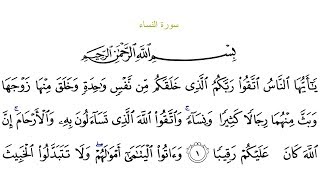 سورة النساء
بِسْمِ ٱللَّهِ ٱلرَّحْمَٰنِ ٱلرَّحِيمِ
يَٰٓأَيُّهَا ٱلنَّاسُ ٱتَّقُوا۟ رَبَّكُمُ ٱلَّذِى خَلَقَكُم مِّن نَّفْسٍ وَٰحِدَةٍ وَخَلَقَ مِنْهَا زَوْجَهَا
وَبَثَّ مِنْهُمَا رِجَالًا كَثِيرًا وَنِسَآءً ۚ وَٱتَّقُوا۟ ٱللَّهَ ٱلَّذِى تَسَآءَلُونَ بِهِۦ وَٱلْأَرْحَامَ ۚ إِنَّ
ٱللَّهَ كَانَ عَلَيْكُمْ رَقِيبًا ١ وَءَاتُوا۟ ٱلْيَتَٰمَىٰٓ أَمْوَٰلَهُمْ ۖ وَلَا تَتَبَدَّلُوا۟ ٱلْخَبِيثَ